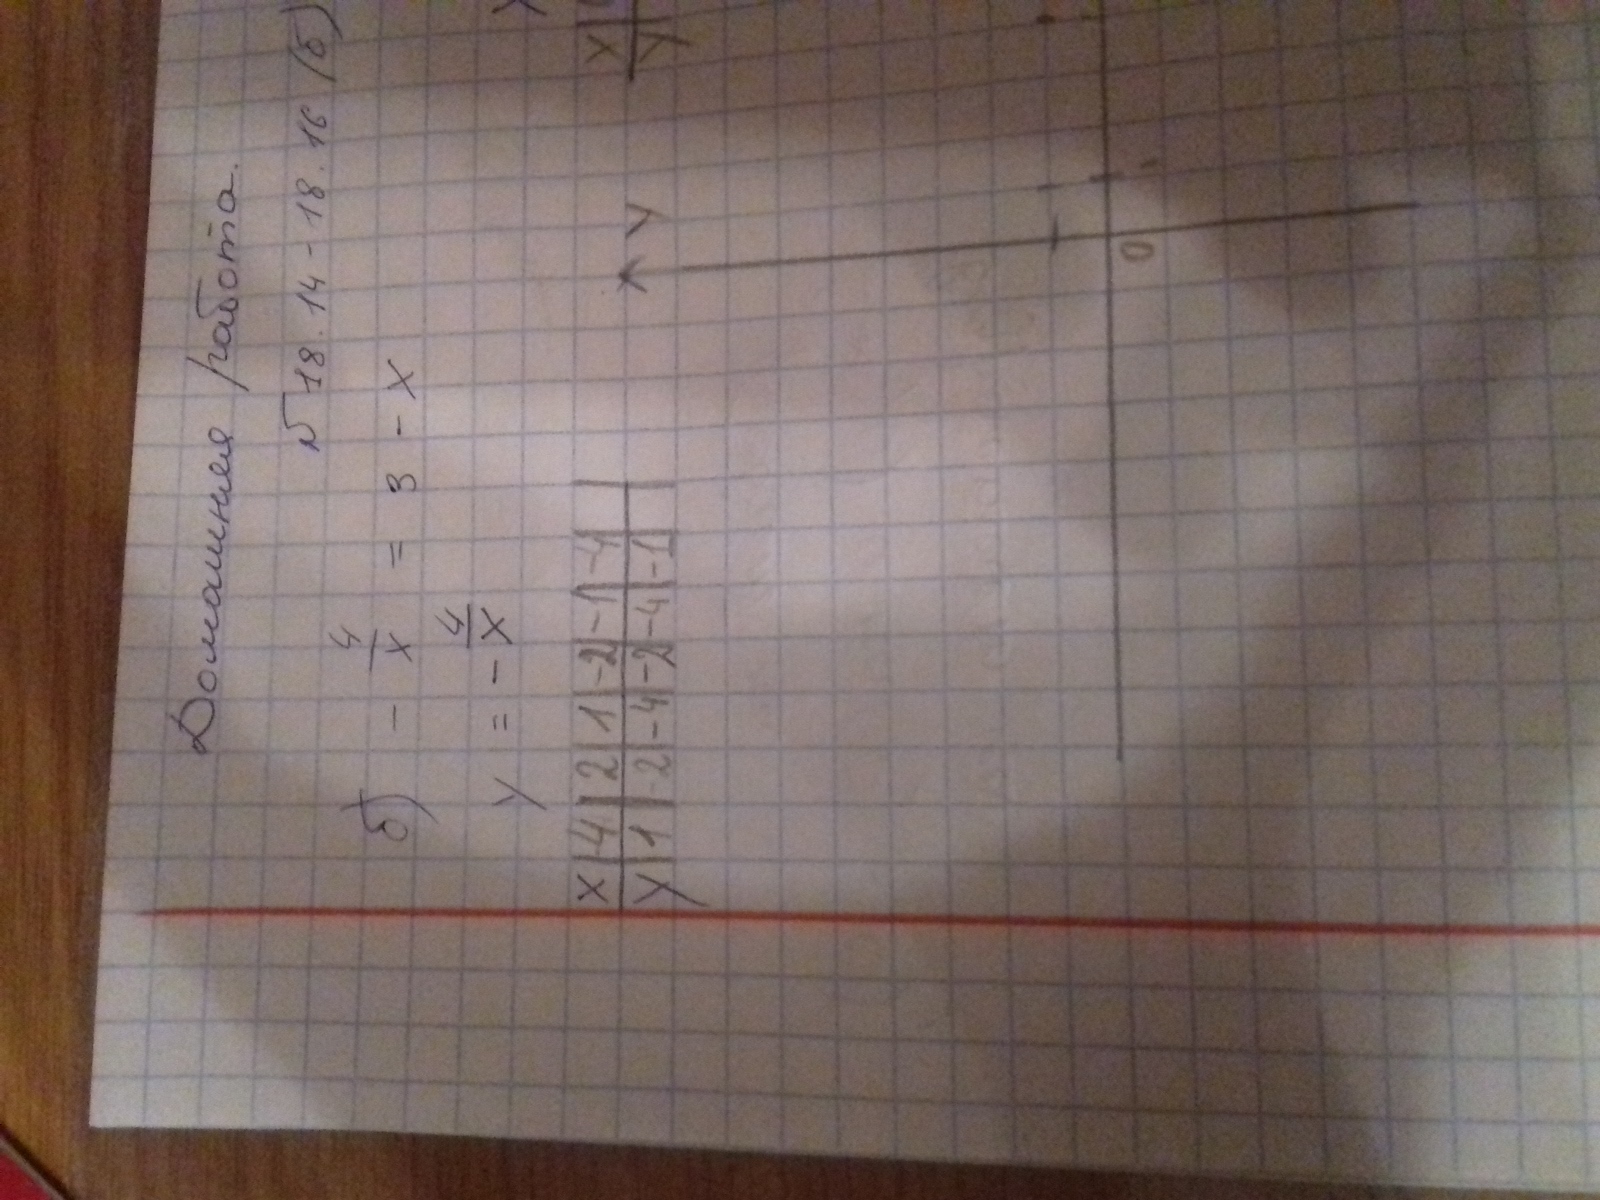 Домашняя работа.
№ 18.14 - 18.16 (б)
б) - 4/x = 3 - x
y = - 4/x
x | 4 | 2 | 1 | -2 | -1 | -4 |
y | 1 | -2 | -4 | -2 | -4 | -1 |
x
y
y
0